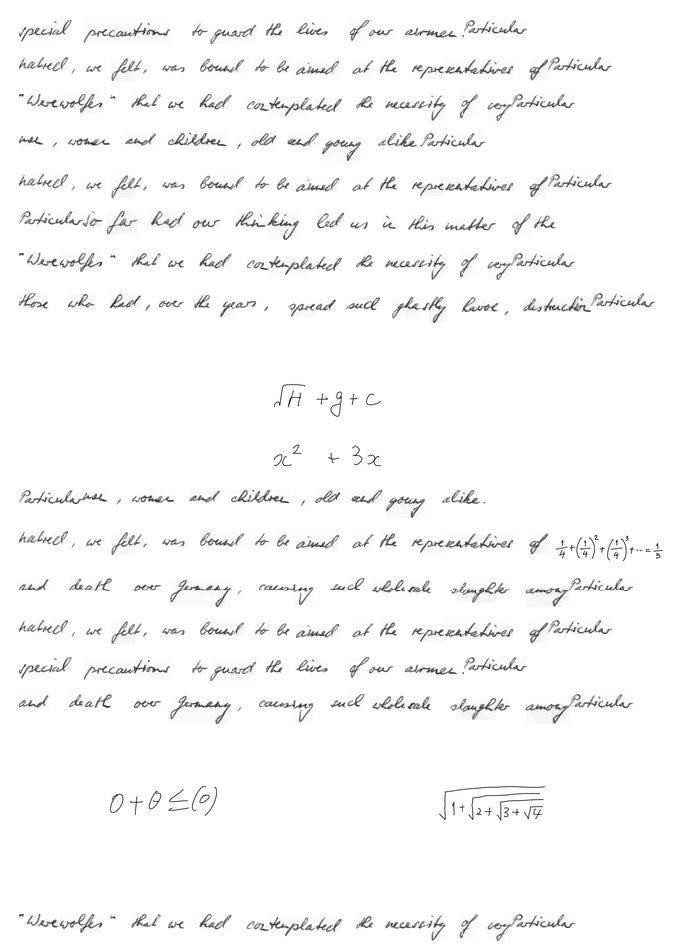 special precautions to guard the lives of our airmen. Particular
hatred, we felt, was bound to be aimed at the representatives of Particular
"Werewolfes" that we had contemplated the necessity of very Particular
men, women and children, old and young alike Particular
hatred, we felt, was bound to be aimed at the representatives of Particular
Particular So far had our thinking led us in this matter of the
"Werewolfes" that we had contemplated the necessity of very Particular
those who had, over the years, spread such ghastly havoc, destruction Particular
√H + g + c
x² + 3x
Particular men, women and children, old and young alike.
hatred, we felt, was bound to be aimed at the representatives of 1/4 + (1/4)² + (1/4)³ + ... = 1/3
and death over Germany, causing such wholesale slaughter among Particular
hatred, we felt, was bound to be aimed at the representatives of Particular
special precautions to guard the lives of our airmen. Particular
and death over Germany, causing such wholesale slaughter among Particular
0 + θ ≤ (0) √(1 + √(2 + √(3 + √4)))
"Werewolfes" that we had contemplated the necessity of very Particular